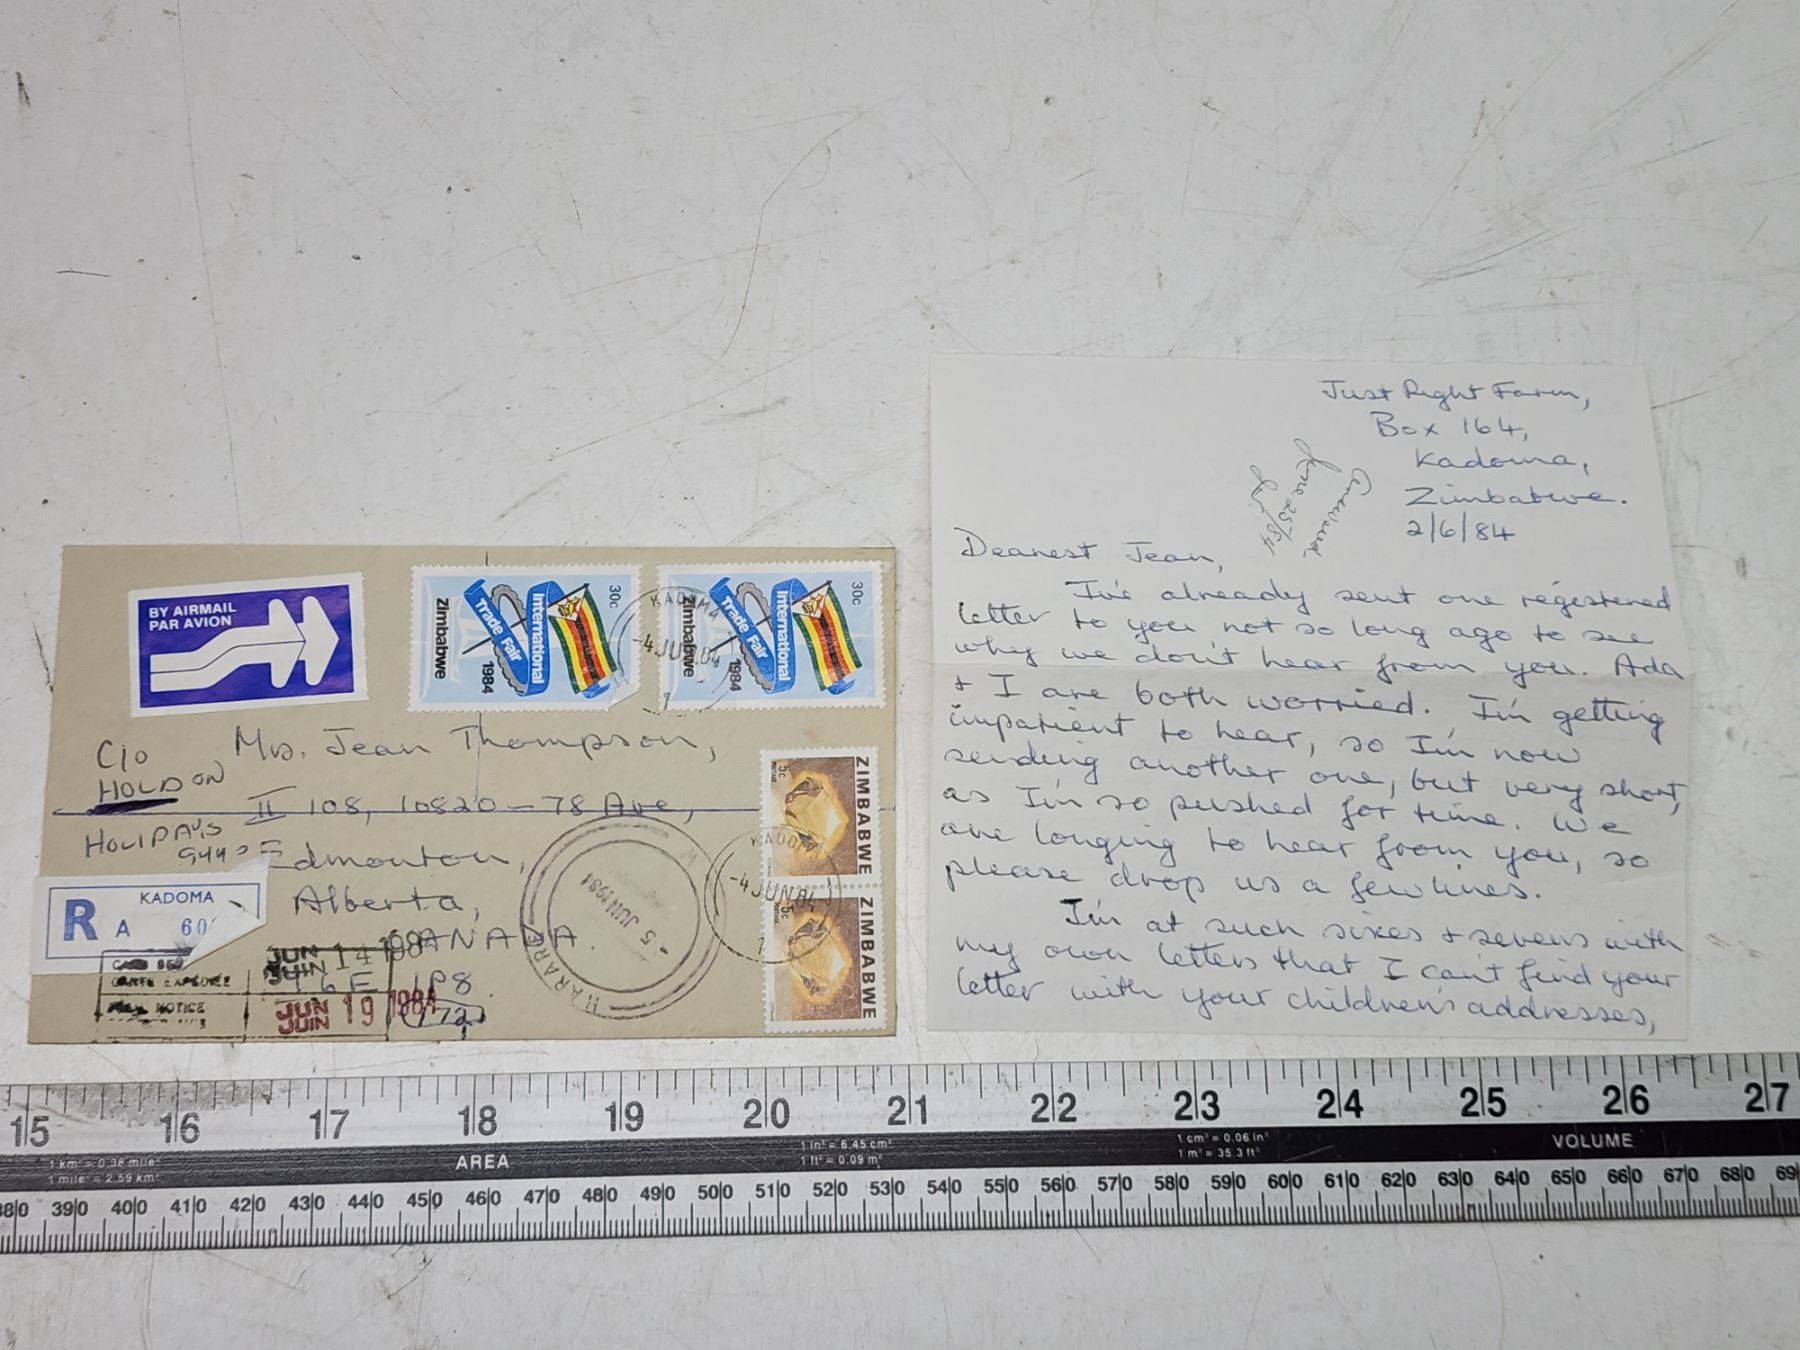 BY AIRMAIL
PAR AVION
30c
International
Trade Fair
1984
Zimbabwe
30c
International
Trade Fair
1984
Zimbabwe
KADOMA
-4 JUN 84
C/o Mrs. Jean Thompson,
HOLD ON
II 108, 10820-78 Ave,
HOLIDAYS
Edmonton,
Alberta,
CANADA.
T6E 1P8.
R A KADOMA
60
JUN
JUIN 14 198
JUN
JUIN 19 1984
NOTICE
172
HARARE
-5 JUN 1981
5c
POSTAGE
ZIMBABWE
KADOMA
-4 JUN 84
5c
ZIMBABWE
Just Right Farm,
Box 164,
Kadoma,
Zimbabwe.
2/6/84
Answered
June 25/84
Dearest Jean,
I've already sent one registered
letter to you not so long ago to see
why we don't hear from you. Ada
+ I are both worried. I'm getting
impatient to hear, so I'm now
sending another one, but very short,
as I'm so pushed for time. We
are longing to hear from you, so
please drop us a few lines.
I'm at such sixes + sevens with
my own letters that I can't find your
letter with your children's addresses,
15 16 17 18 19 20 21 22 23 24 25 26 27
1 km² = 0.38 mile²
1 mile² = 2.59 km²
AREA
1 in² = 6.45 cm²
1 ft² = 0.09 m²
1 cm³ = 0.06 in³
1 m³ = 35.3 ft³
VOLUME
380 390 400 410 420 430 440 450 460 470 480 490 500 510 520 530 540 550 560 570 580 590 600 610 620 630 640 650 660 670 680 69